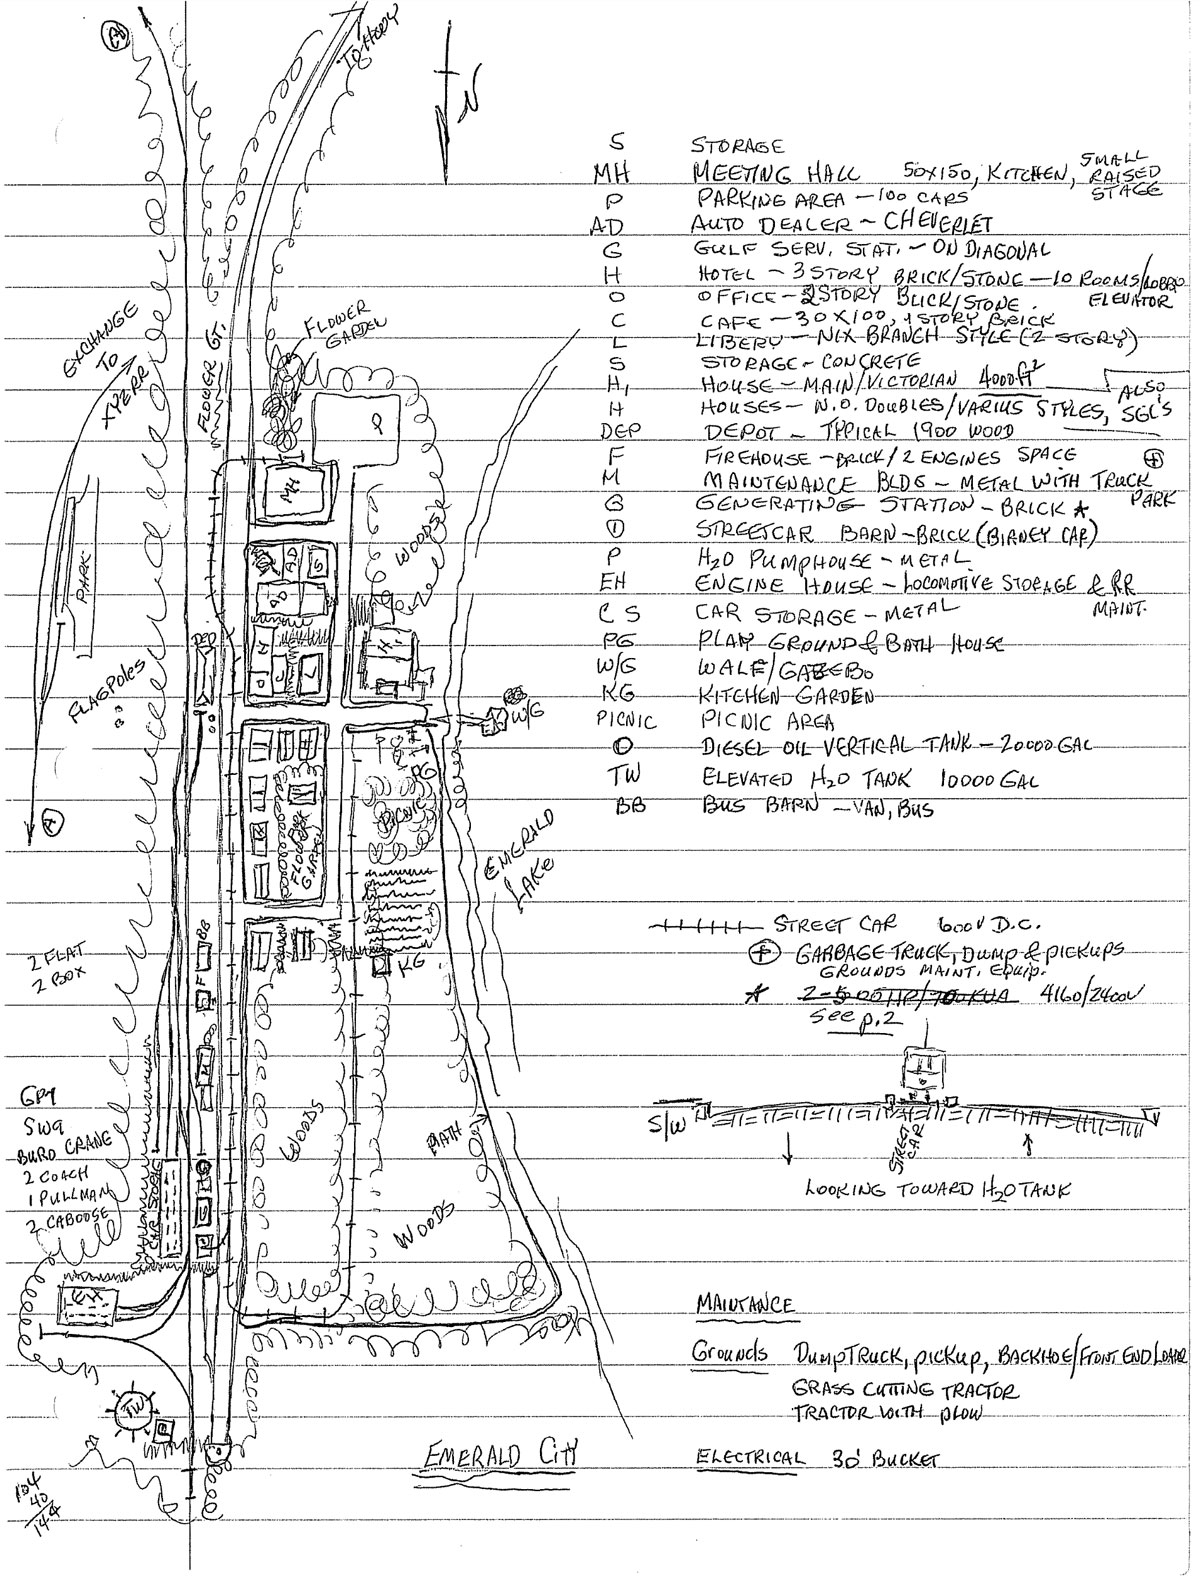 TO HWY
N
S STORAGE
MH MEETING HALL 50X150, KITCHEN, SMALL RAISED STAGE
P PARKING AREA — 100 CARS
AD AUTO DEALER ~ CHEVERLET
G GULF SERV. STAT. ~ ON DIAGONAL
H HOTEL ~ 3 STORY BRICK/STONE — 10 ROOMS/LOBBY
ELEVATOR
O OFFICE — 2 STORY BLICK/STONE
C CAFE — 30X100, 1 STORY BRICK
L LIBERY — NIX BRANCH STYLE (2 STORY)
S STORAGE - CONCRETE
H, HOUSE — MAIN/VICTORIAN 4000 ft²
H HOUSES — N.O. DOUBLES/VARIUS STYLES, ALSO SGL'S
DEP DEPOT — TYPICAL 1900 WOOD
F FIREHOUSE — BRICK/2 ENGINES SPACE
M MAINTENANCE BLDG — METAL WITH TRUCK PARK
G GENERATING STATION — BRICK
STREETCAR BARN — BRICK (BIRNEY CAR)
P H2O PUMPHOUSE — METAL
EH ENGINE HOUSE — LOCOMOTIVE STORAGE & RR MAINT.
C S CAR STORAGE — METAL
PG PLAY GROUND & BATH HOUSE
W/G WALF/GAZEBO
KG KITCHEN GARDEN
PICNIC PICNIC AREA
O DIESEL OIL VERTICAL TANK — 20000 GAL
TW ELEVATED H2O TANK 10000 GAL
BB BUS BARN — VAN, BUS
STREET CAR 600V D.C.
GARBAGE TRUCK, DUMP & PICKUPS
GROUNDS MAINT. EQUIP.
4160/2400V
See p.2
S/W
STREET CAR
LOOKING TOWARD H2O TANK
MAINTANCE
Grounds DUMPTRUCK, PICKUP, BACKHOE/FRONT END LOADER
GRASS CUTTING TRACTOR
TRACTOR WITH PLOW
ELECTRICAL 30' BUCKET
EMERALD CITY
EXCHANGE
TO
XYZRR
FLOWER GT.
FLOWER
GARDEN
P
MH
PARK
WOODS
AD
S
DEP
FLAGPOLES
H
O
C
L
H,
W/G
PG
PICNIC
FLOWER
GARDEN
EMERALD
LAKE
KG
2 FLAT
2 BOX
BB
F
M
GP7
SW9
BURO CRANE
2 COACH
1 PULLMAN
2 CABOOSE
CAR STORAGE
WOODS
PATH
WOODS
EH
TW
P
104
40
144